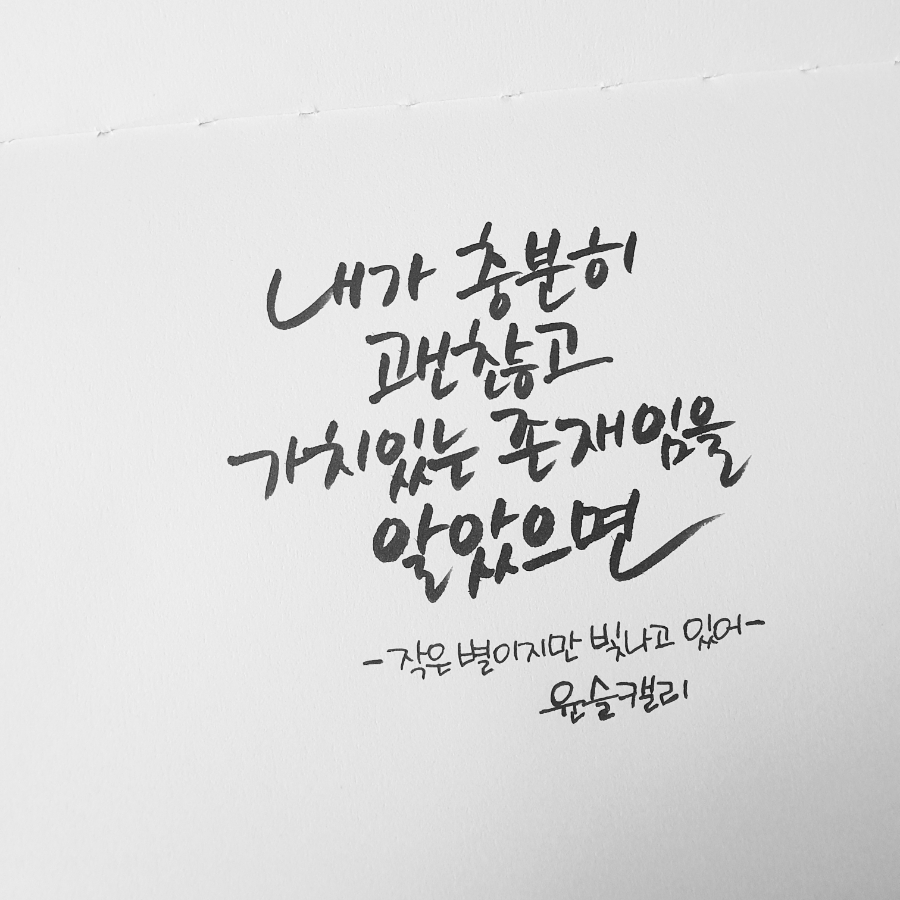 내가 충분히
괜찮고
가치있는 존재임을
알았으면
-작은 별이지만 빛나고 있어-
윤슬캘리